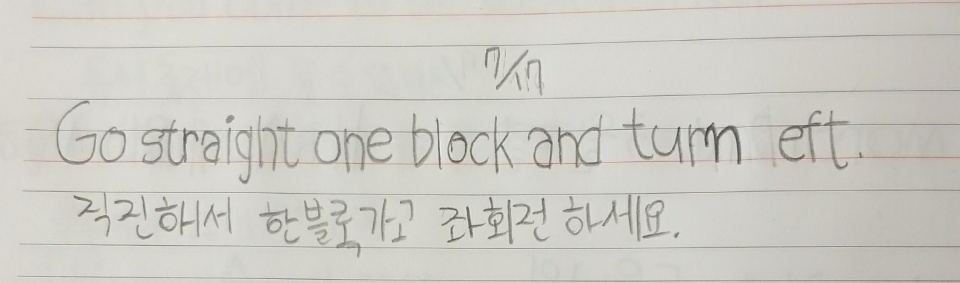 7/17
Go straight one block and turn eft.
직진해서 한블록가고 좌회전 하세요.